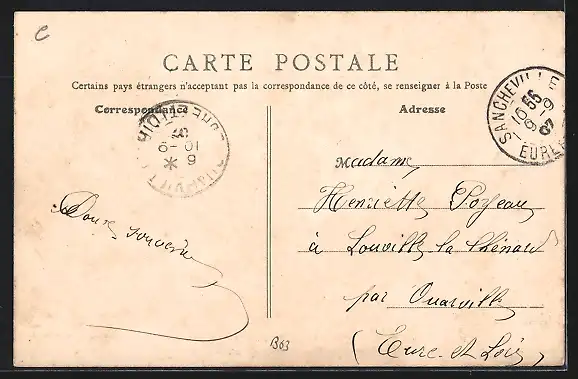 C
CARTE POSTALE
Certains pays étrangers n'acceptant pas la correspondance de ce côté, se renseigner à la Poste
Correspondance
Adresse
SANCHEVILLE
10 55
8 -9
07
EURE
EURE-ET-LOIR
6
10-9
07
Madame
Henriette
à Louville la Chénard
par Ouarville
(Eure-et-Loir
Doux souvenir
B63